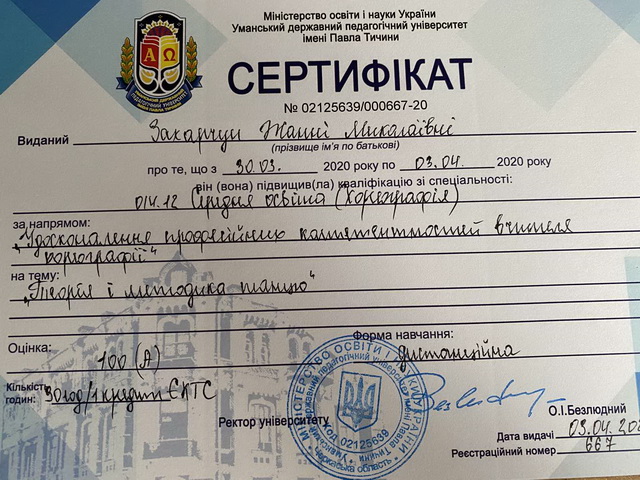 Міністерство освіти і науки України
Уманський державний педагогічний університет
імені Павла Тичини
СЕРТИФІКАТ
№ 02125639/000667-20
Виданий Захарчун Жанні Миколаївні
(прізвище ім'я по батькові)
про те, що з 30.03. 2020 року по 03.04. 2020 року
він (вона) підвищив(ла) кваліфікацію зі спеціальності:
014.12 Середня освіта (Хореографія)
за напрямом:
"Удосконалення професійних компетентностей вчителя
хореографії"
на тему:
"Теорія і методика танцю"
Оцінка: 100 (А)
Форма навчання: дистанційна
Кількість годин: 30 год/1 кредит ЄКТС
Ректор університету
О.І.Безлюдний
Дата видачі 03.04.
Реєстраційний номер 667
Код 02125639